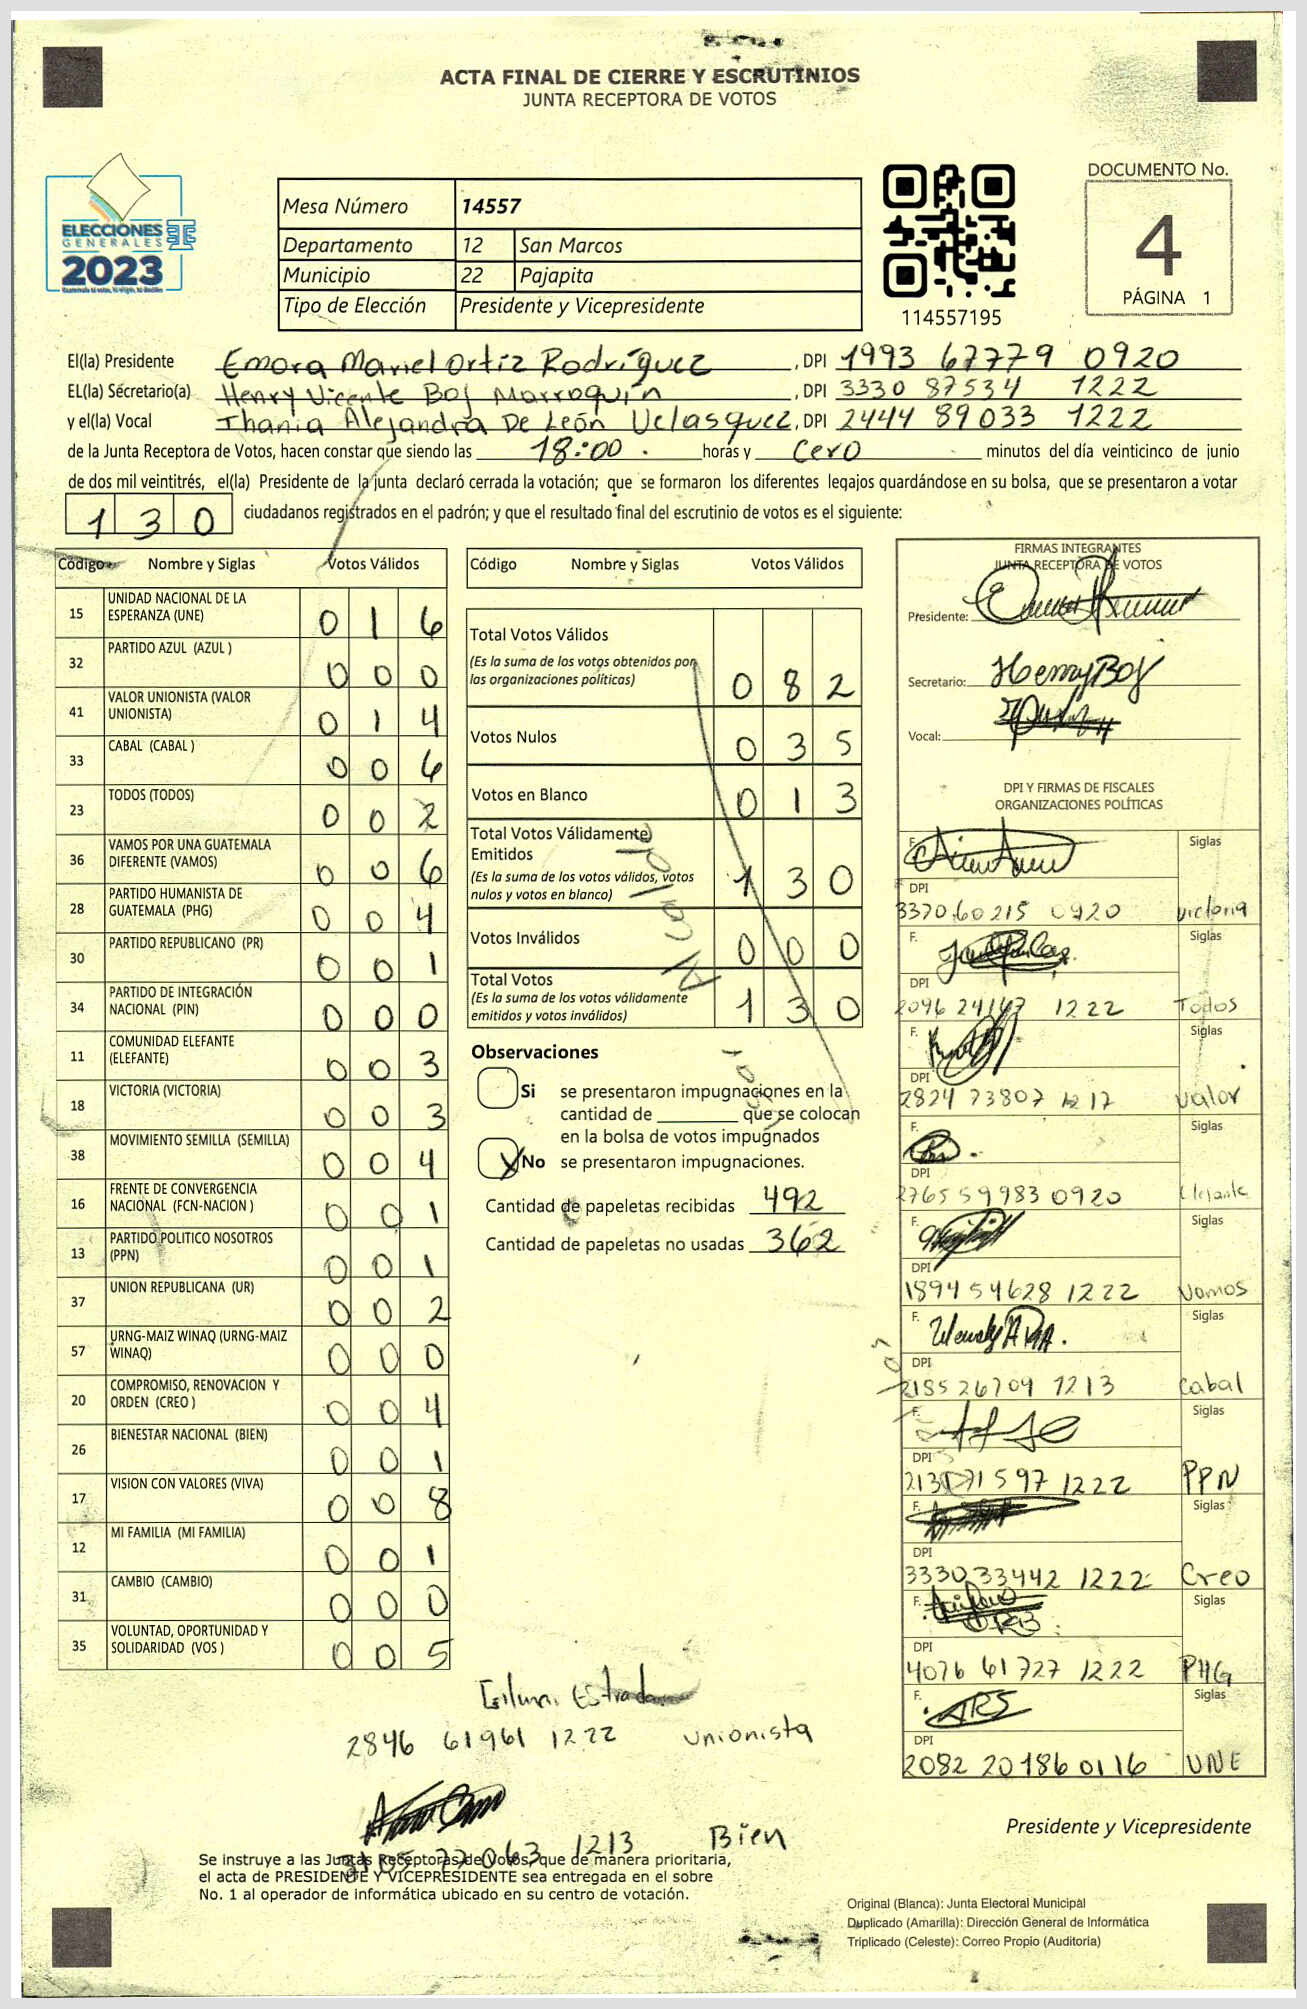 ACTA FINAL DE CIERRE Y ESCRUTINIOS
JUNTA RECEPTORA DE VOTOS
ELECCIONES
GENERALES
2023
Mesa Número 14557
Departamento 12 San Marcos
Municipio 22 Pajapita
Tipo de Elección Presidente y Vicepresidente
114557195
DOCUMENTO No.
4
PÁGINA 1
El(la) Presidente Emora Mariel Ortiz Rodríguez, DPI 1993 67779 0920
EL(la) Secretario(a) Henry Vicente Boj Marroquín, DPI 3330 87534 1222
y el(la) Vocal Thania Alejandra De León Velasquez, DPI 2444 89033 1222
de la Junta Receptora de Votos, hacen constar que siendo las 18:00 horas y cero minutos del día veinticinco de junio
de dos mil veintitrés, el(la) Presidente de la junta declaró cerrada la votación; que se formaron los diferentes legajos guardándose en su bolsa, que se presentaron a votar
130 ciudadanos registrados en el padrón; y que el resultado final del escrutinio de votos es el siguiente:
Código Nombre y Siglas Votos Válidos
15 UNIDAD NACIONAL DE LA ESPERANZA (UNE) 0 1 6
32 PARTIDO AZUL (AZUL ) 0 0 0
41 VALOR UNIONISTA (VALOR UNIONISTA) 0 1 4
33 CABAL (CABAL ) 0 0 6
23 TODOS (TODOS) 0 0 2
36 VAMOS POR UNA GUATEMALA DIFERENTE (VAMOS) 0 0 6
28 PARTIDO HUMANISTA DE GUATEMALA (PHG) 0 0 4
30 PARTIDO REPUBLICANO (PR) 0 0 1
34 PARTIDO DE INTEGRACIÓN NACIONAL (PIN) 0 0 0
11 COMUNIDAD ELEFANTE (ELEFANTE) 0 0 3
18 VICTORIA (VICTORIA) 0 0 3
38 MOVIMIENTO SEMILLA (SEMILLA) 0 0 4
16 FRENTE DE CONVERGENCIA NACIONAL (FCN-NACION ) 0 0 1
13 PARTIDO POLITICO NOSOTROS (PPN) 0 0 1
37 UNION REPUBLICANA (UR) 0 0 2
57 URNG-MAIZ WINAQ (URNG-MAIZ WINAQ) 0 0 0
20 COMPROMISO, RENOVACION Y ORDEN (CREO ) 0 0 4
26 BIENESTAR NACIONAL (BIEN) 0 0 1
17 VISION CON VALORES (VIVA) 0 0 8
12 MI FAMILIA (MI FAMILIA) 0 0 1
31 CAMBIO (CAMBIO) 0 0 0
35 VOLUNTAD, OPORTUNIDAD Y SOLIDARIDAD (VOS ) 0 0 5
Código Nombre y Siglas Votos Válidos
Total Votos Válidos
(Es la suma de los votos obtenidos por
las organizaciones políticas) 0 8 2
Votos Nulos 0 3 5
Votos en Blanco 0 1 3
Total Votos Válidamente
Emitidos
(Es la suma de los votos válidos, votos
nulos y votos en blanco) 1 3 0
Votos Inválidos 0 0 0
Total Votos
(Es la suma de los votos válidamente
emitidos y votos inválidos) 1 3 0
Observaciones
Si se presentaron impugnaciones en la
cantidad de ________ que se colocan
en la bolsa de votos impugnados
X No se presentaron impugnaciones.
Cantidad de papeletas recibidas 492
Cantidad de papeletas no usadas 362
FIRMAS INTEGRANTES
JUNTA RECEPTORA DE VOTOS
Presidente:
Secretario: Henry Boj
Vocal:
DPI Y FIRMAS DE FISCALES
ORGANIZACIONES POLÍTICAS
F. Siglas
DPI
3370 60215 0920 victoria
F. Siglas
DPI
2096 24167 1222 Todos
F. Siglas
DPI
2824 73807 1217 valor
F. Siglas
DPI
2765 59983 0920 Elefante
F. Siglas
DPI
1894 54628 1222 Vamos
F. Siglas
DPI
2185 26709 1213 Cabal
F. Siglas
DPI
1222 PPN
F. Siglas
DPI
3330 33442 1222 Creo
F. Siglas
DPI
4076 61727 1222 PHG
F. ARS Siglas
DPI
2082 20186 0116 UNE
Estrada
2846 61961 1222 Unionista
3105 77063 1213 Bien
Presidente y Vicepresidente
Se instruye a las Juntas Receptoras de Votos, que de manera prioritaria,
el acta de PRESIDENTE Y VICEPRESIDENTE sea entregada en el sobre
No. 1 al operador de informática ubicado en su centro de votación.
Original (Blanca): Junta Electoral Municipal
Duplicado (Amarilla): Dirección General de Informática
Triplicado (Celeste): Correo Propio (Auditoria)